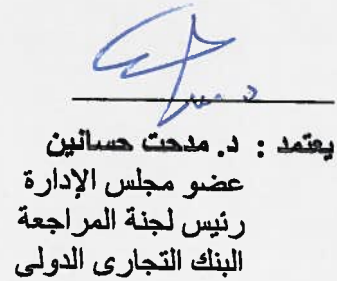 يعتمد : د. مدحت حسانين
عضو مجلس الإدارة
رئيس لجنة المراجعة
البنك التجارى الدولى